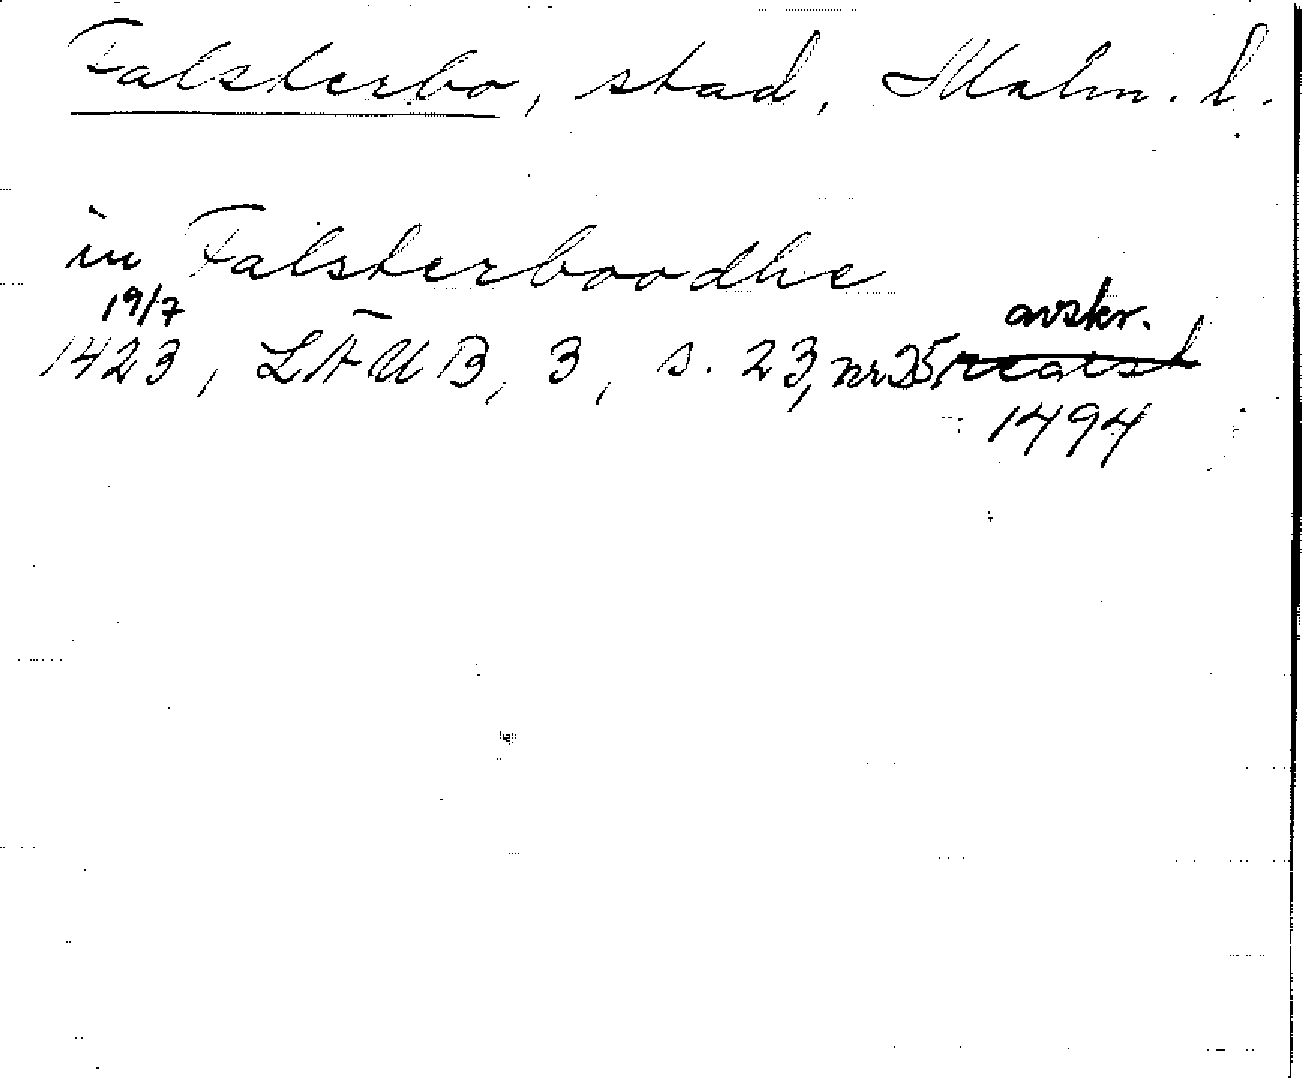 Falsterbo, stad, Malm. l.
in Falsterboodhe
19/7 avskr.
1423, LÄUB, 3, s. 23, nr 25,
1494